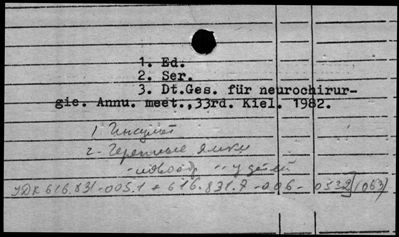 1. Ed.
2. Ser.
3. Dt.Ges. für neurochirur-
gie. Annu. meet.,33rd. Kiel. 1982.
1. Инсульт
2. Черепные ямки
- новообр. - у детей
УДК 616.831-005.1 + 616.831.9-006-053.2](063)